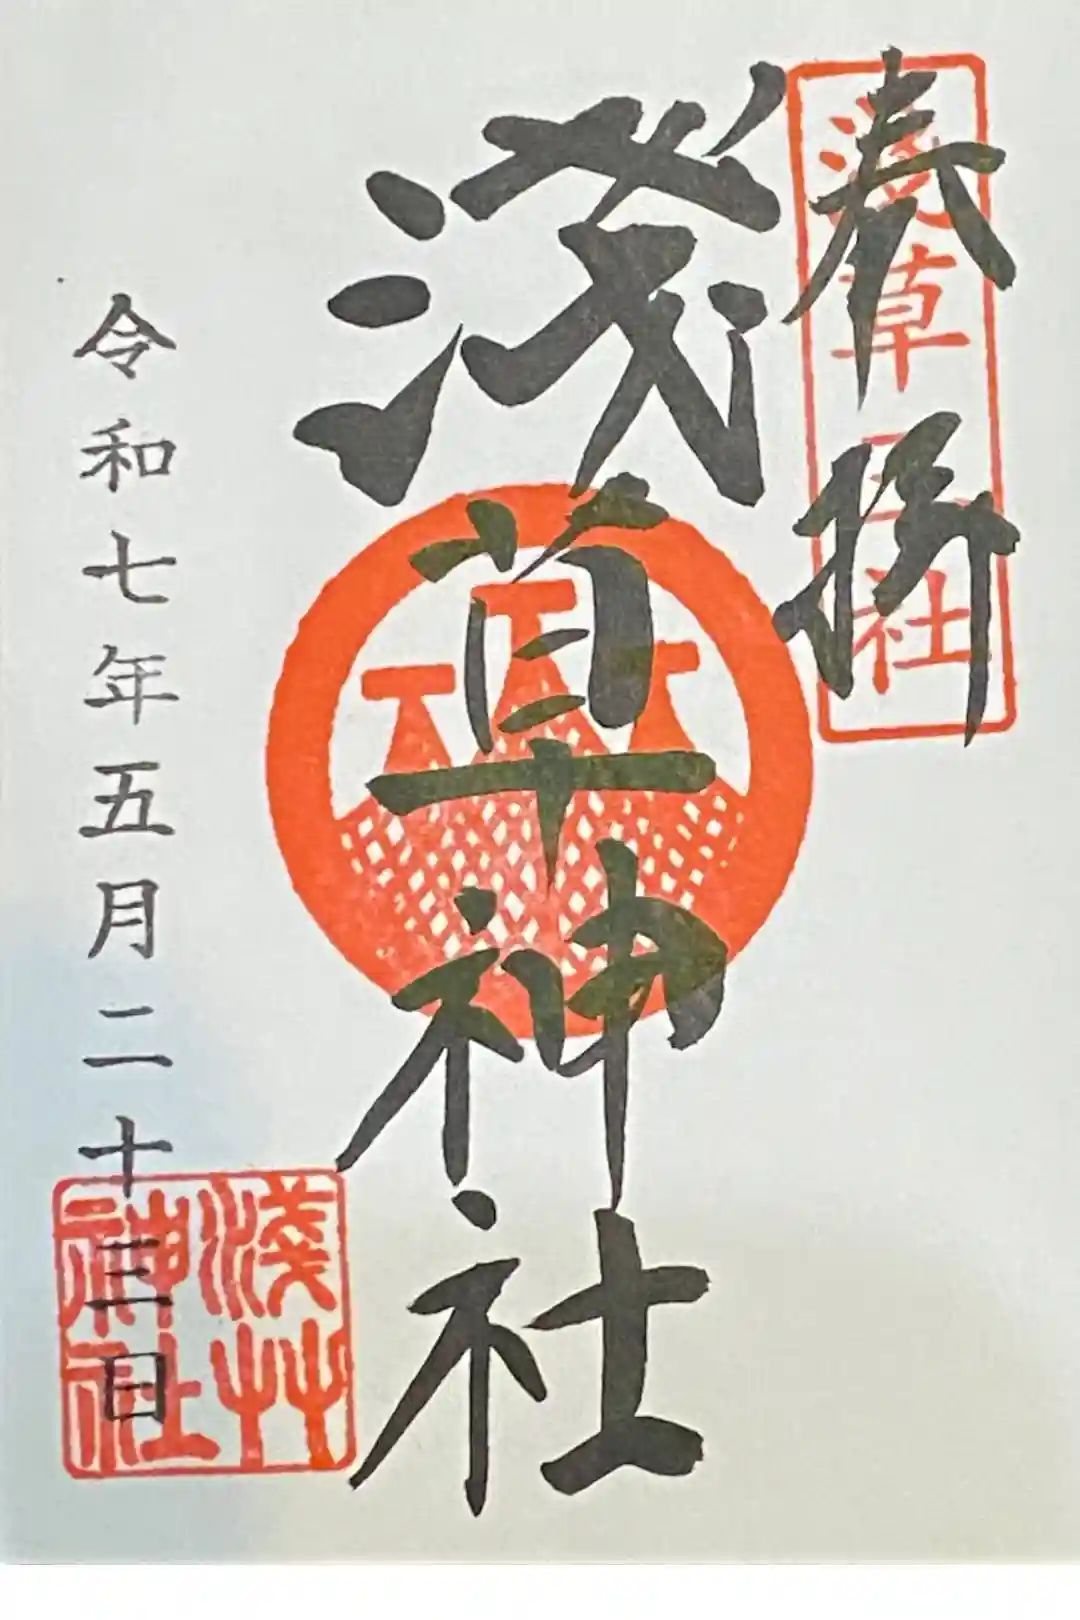 奉拝
浅草三社
淺草神社
令和七年五月二十三日
淺艸
神社